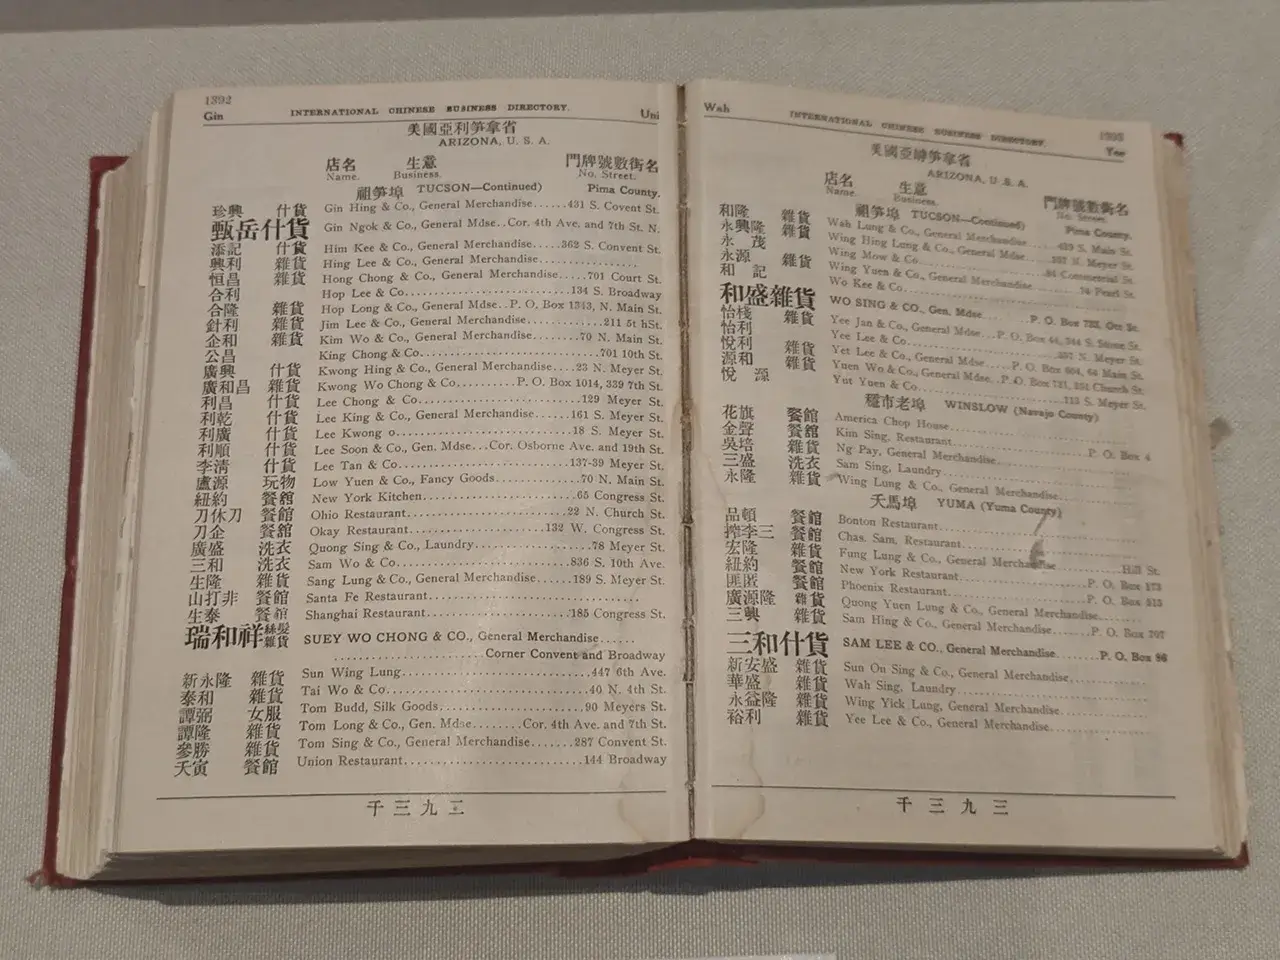 1392
Gin INTERNATIONAL CHINESE BUSINESS DIRECTORY. Uni
美國亞利笋拿省
ARIZONA, U. S. A.
店名 生意 門牌號數街名
Name. Business. No. Street.
祖笋埠 TUCSON—Continued) Pima County.
珍興 什貨 Gin Hing & Co., General Merchandise.....431 S. Covent St.
甄岳什貨 Gin Ngok & Co., General Mdse..Cor. 4th Ave. and 7th St. N.
添記 什貨 Him Kee & Co., General Merchandise.....362 S. Convent St.
興利 雜貨 Hing Lee & Co., General Merchandise................
恒昌 雜貨 Hong Chong & Co., General Merchandise.......701 Court St.
合利 Hop Lee & Co.......................134 S. Broadway
合隆 雜貨 Hop Long & Co., General Mdse..P. O. Box 1343, N. Main St.
針利 雜貨 Jim Lee & Co., General Merchandise...........211 5t hSt.
企和 雜貨 Kim Wo & Co., General Merchandise.......70 N. Main St.
公昌 King Chong & Co.........................701 10th St.
廣興 什貨 Kwong Hing & Co., General Merchandise....23 N. Meyer St.
廣和昌 雜貨 Kwong Wo Chong & Co..........P. O. Box 1014, 339 7th St.
利昌 什貨 Lee Chong & Co........................129 Meyer St.
利乾 什貨 Lee King & Co., General Merchandise......161 S. Meyer St.
利廣 什貨 Lee Kwong o..........................18 S. Meyer St.
利順 什貨 Lee Soon & Co., Gen. Mdse...Cor. Osborne Ave. and 19th St.
李清 什貨 Lee Tan & Co.......................137-39 Meyer St.
盧源 玩物 Low Yuen & Co., Fancy Goods..........70 N. Main St.
紐約 餐舘 New York Kitchen.....................65 Congress St.
刀休刀 餐舘 Ohio Restaurant.....................22 N. Church St.
刀企 餐舘 Okay Restaurant..................132 W. Congress St.
廣盛 洗衣 Quong Sing & Co., Laundry..............78 Meyer St.
三和 洗衣 Sam Wo & Co.......................836 S. 10th Ave.
生隆 雜貨 Sang Lung & Co., General Merchandise.....189 S. Meyer St.
山打非 餐舘 Santa Fe Restaurant............................
生泰 餐舘 Shanghai Restaurant...................185 Congress St.
瑞和祥絲髮雜貨 SUEY WO CHONG & CO., General Merchandise......
...................Corner Convent and Broadway
新永隆 雜貨 Sun Wing Lung........................447 6th Ave.
泰和 雜貨 Tai Wo & Co.........................40 N. 4th St.
譚弼 女服 Tom Budd, Silk Goods..................90 Meyers St.
譚隆 雜貨 Tom Long & Co., Gen. Mdse........Cor. 4th Ave. and 7th St.
參勝 雜貨 Tom Sing & Co., General Merchandise.......287 Convent St.
天寅 餐館 Union Restaurant......................144 Broadway
千三九二
Wah INTERNATIONAL CHINESE BUSINESS DIRECTORY. 1393
Yee
美國亞利笋拿省
ARIZONA, U. S. A.
店名 生意 門牌號數街名
Name. Business. No. Street.
祖笋埠 TUCSON—Continued) Pima County.
和隆 雜貨 Wah Lung & Co., General Merchandise......439 S. Main St.
永興隆 雜貨 Wing Hing Lung & Co., General Mdse......
永茂 Wing Mow & Co..................84 Commercial St.
永源 雜貨 Wing Yuen & Co., General Merchandise.......
和記 Wo Kee & Co................
和盛雜貨 WO SING & CO., Gen. Mdse.......P. O. Box 733, Ott St.
怡棧 雜貨 Yee Jan & Co., General Mdse...P. O. Box 44, 344 S. Stone St.
怡利 Yee Lee & Co.................N. Meyer St.
悅利 雜貨 Yet Lee & Co., General Mdse.....P. O. Box 604, 64 Main St.
源和 雜貨 Yuen Wo & Co., General Mdse..P. O. Box 721, 251 Church St.
悅源 Yut Yuen & Co...................113 S. Meyer St.
穩市老埠 WINSLOW (Navajo County)
花旗 餐舘 America Chop House......................
金聲 餐舘 Kim Sing, Restaurant...............P. O. Box 4
吳培 雜貨 Ng Pay, General Merchandise...............
三盛 洗衣 Sam Sing, Laundry....................
永隆 雜貨 Wing Lung & Co., General Merchandise...........
夭馬埠 YUMA (Yuma County)
品頓 餐舘 Bonton Restaurant......................
搾李三 餐舘 Chas. Sam, Restaurant..................
宏隆 雜貨 Fung Lung & Co., General Merchandise..........Hill St.
紐約 餐舘 New York Restaurant................P. O. Box 173
匪匿 餐舘 Phoenix Restaurant..................P. O. Box 513
廣源隆 雜貨 Quong Yuen Lung & Co., General Merchandise........
三興 雜貨 Sam Hing & Co., General Merchandise.....P. O. Box 797
三和什貨 SAM LEE & CO., General Merchandise.......P. O. Box 86
新安盛 雜貨 Sun On Sing & Co., General Merchandise...........
華盛 雜貨 Wah Sing, Laundry..................
永益隆 雜貨 Wing Yick Lung, General Merchandise...........
裕利 雜貨 Yee Lee & Co., General Merchandise............
千三九三